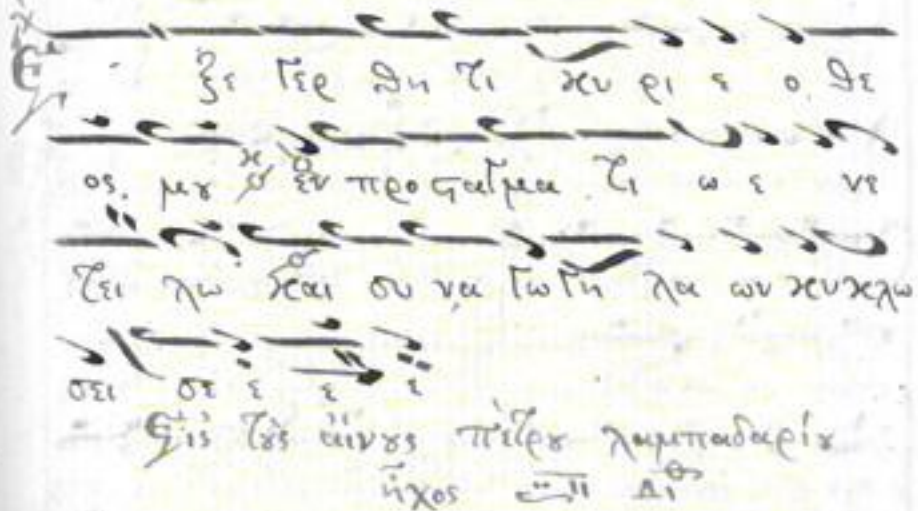 Ἐ ξε γερ θη τι κυ ρι ε ο θε
ος μȣ ἐν προ ϛαγμα τι ω ε νε
τει λω και συ να γω γη λα ων κυ κλω
σει σε ε ε ε
Εἰς τȣς αἴνȣς πέτρȣ λαμπαδαρίȣ
ἦχος